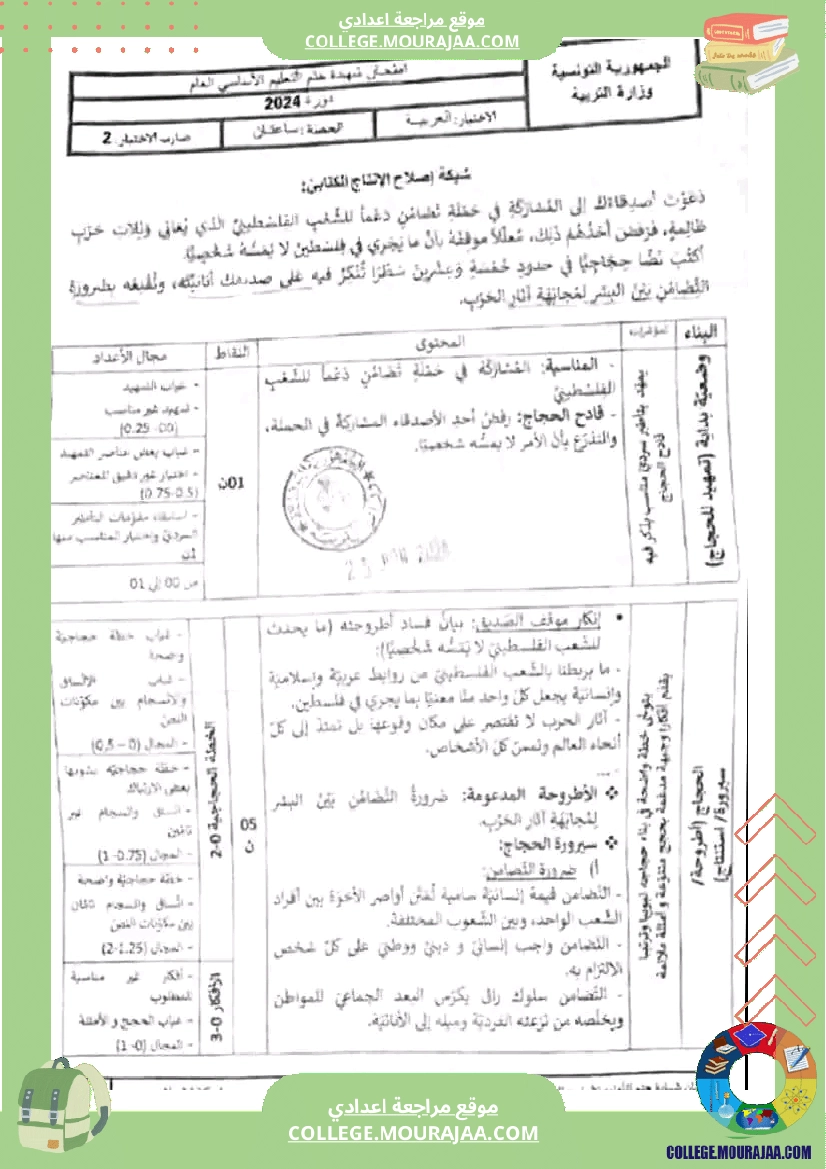 موقع مراجعة اعدادي
COLLEGE.MOURAJAA.COM
الجمهورية التونسية
وزارة التربية
امتحان شهادة ختم التعليم الأساسي العام
دورة 2024
الاختبار: العربية
الحصة: ساعتان
ضارب الاختبار: 2
شبكة إصلاح الإنتاج الكتابي:
دَعَوْتَ أصدقاءَكَ إلى المُشاركَةِ في حَمْلَةِ تَضامُنٍ دَعْماً للشّعْبِ الفِلسْطينِيِّ الذي يُعَاني وَيْلاتِ حَرْبٍ
ظالِمةٍ، فَرَفَضَ أحَدُهُم ذلِكَ، مُعلّلاً موقفَهُ بأنّ ما يَجْري في فِلسطينَ لا يَمَسُّهُ شَخْصِيًّا.
أكتُبْ نَصًّا حِجَاجِيًّا في حدودِ خَمْسَةٍ وَعِشْرينَ سَطْرًا تُنْكِرُ فيه على صديقك أنانيّتَه، وتُقْنِعُه بضرورةِ
التَّضامُنِ بَيْنَ البشرِ لمُجابَهَةِ آثارِ الحَرْبِ.
البناء
المؤشرات
المحتوى
النقاط
مجال الأعداد
وضعيّة بداية (تمهيد للحجاج)
يمهّد بتأطير سرديّ مناسب يذكر فيه
قادح الحجاج
- المناسبة: المُشاركَةُ في حَمْلَةِ تَضامُنٍ دَعْماً للشَّعْبِ
الفِلِسْطينِيِّ
- قادح الحجاج: رفضُ أحدِ الأصدقاء المشاركةَ في الحملة،
والتذرّع بأنّ الأمر لا يمسّه شخصيّا.
01ن
- غياب التمهيد
- تمهيد غير مناسب
(0.25-00)
- غياب بعض عناصر التمهيد
- اختيار غير دقيق للعناصر
(0.75-0.5)
- استيفاء مقوّمات التأطير
السرديّ واختيار المناسب منها
01
من 00 إلى 01
الحجاج (أطروحة/
سيرورة/ استنتاج)
يتوخّى خطّة واضحة في بناء حجاجه تبويبا وترتيبا
يقدّم أفكارا وجيهة مدعّمة بحجج متنوّعة وأمثلة ملائمة
• إنكار موقف الصّديق: بيانُ فساد أطروحته (ما يحدث
للشعب الفلسطينيّ لا يَمَسُّه شَخْصِيًّا):
- ما يربطنا بالشّعب الفلسطينيّ من روابط عربيّة وإسلاميّة
وإنسانيّة يجعل كلّ واحد منّا معنيّا بما يجري في فلسطين.
- آثار الحرب لا تقتصر على مكان وقوعها بل تمتدّ إلى كلّ
أنحاء العالم وتمسّ كلّ الأشخاص.
....
❖ الأطروحة المدعومة: ضرورةُ التَّضامُنِ بَيْنَ البشر
لِمُجابَهَةِ آثارِ الحَرْبِ.
❖ سيرورة الحجاج:
أ) ضرورة التّضامن:
- التّضامن قيمة إنسانيّة سامية تُمَتِّن أواصر الأخوّة بين أفراد
الشّعب الواحد، وبين الشّعوب المختلفة.
- التّضامن واجب إنسانيّ و دينيّ ووطنيّ على كلّ شخص
الالتزام به.
- التّضامن سلوك راق يكرّس البعد الجماعيّ للمواطن
ويخلّصه من نزعته الفرديّة وميله إلى الأنانيّة.
05
ن
الخطة الحجاجية 0-2
الأفكار 0-3
- غياب خطة حجاجيّة
وضحة
- غياب الاتّساق
والانسجام بين مكوّنات
النصّ
- المجال (0 – 0,5)
- خطّة حجاجيّة يشوبها
بعض الارتباك
- اتّساق وانسجام غير
تامّين
- المجال (0.75-1)
- خطّة حجاجيّة واضحة
- اتّساق وانسجام تامّان
بين مكوّنات النصّ
- المجال (1.25-2)
- أفكار غير مناسبة
للمطلوب
- غياب الحجج و الأمثلة
- المجال (0-1)
موقع مراجعة اعدادي
COLLEGE.MOURAJAA.COM
COLLEGE.MOURAJAA.COM